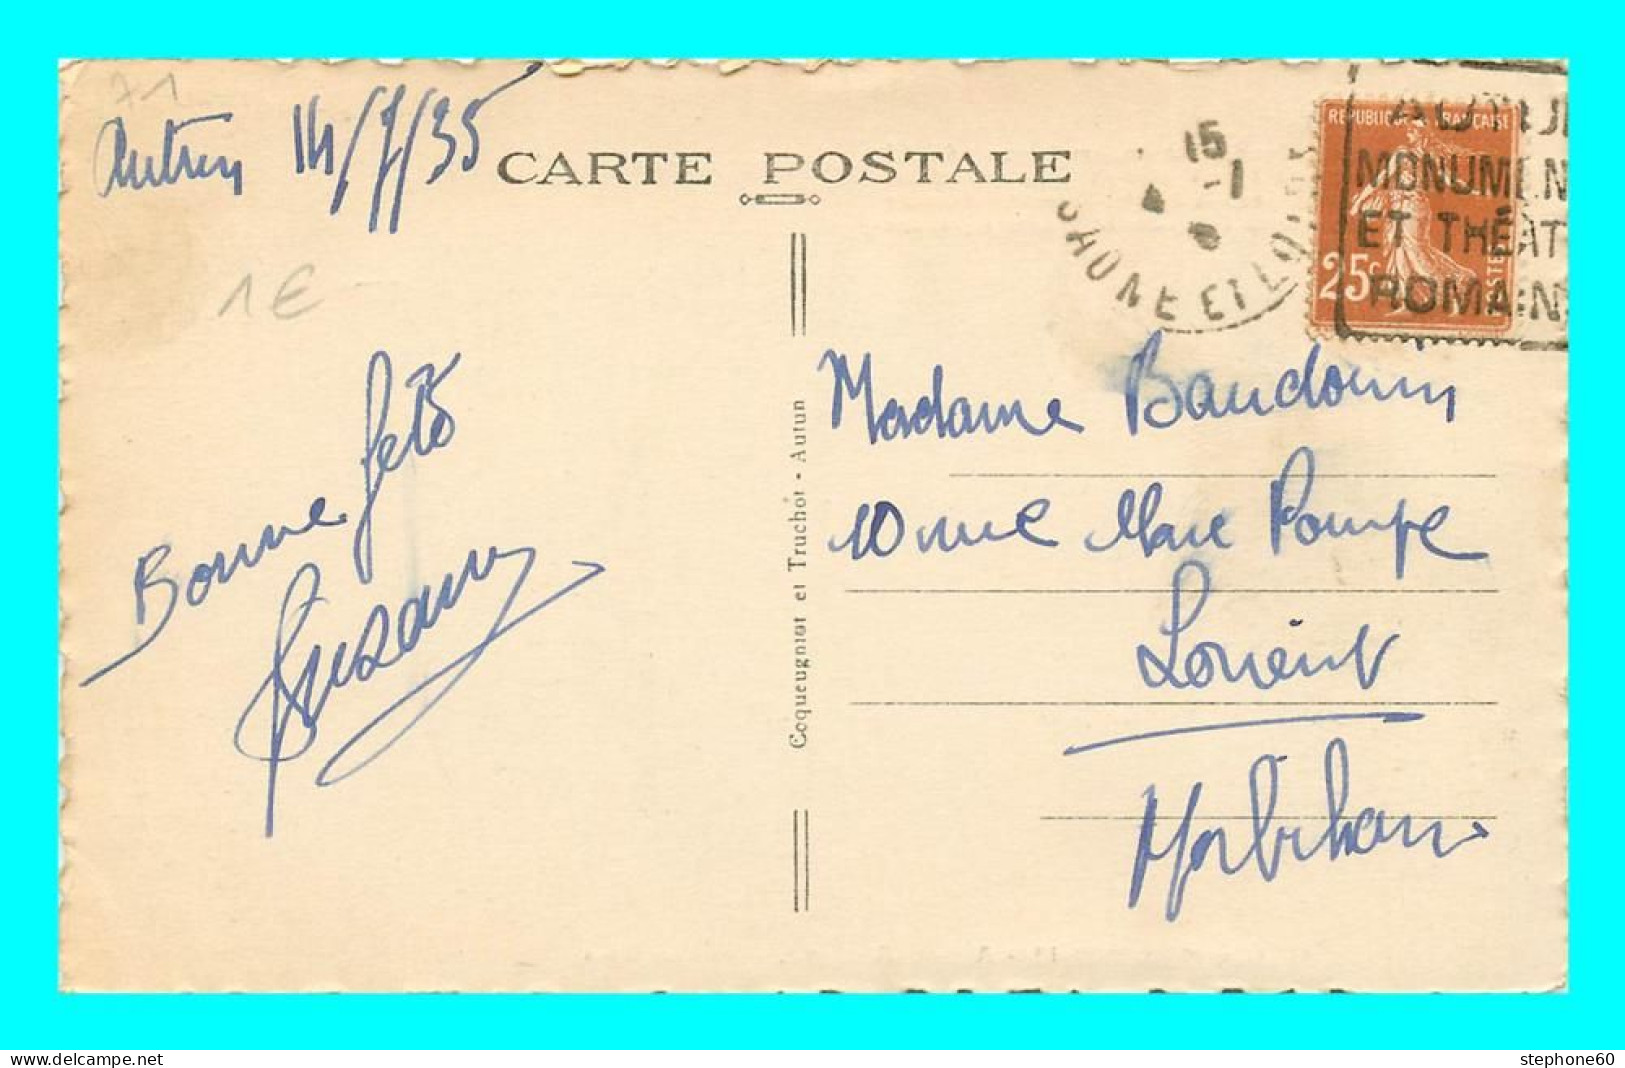 71
Autun 14/7/35
CARTE POSTALE
1€
15
4 -1
SAÔNE ET LOIRE
REPUBLIQUE FRANÇAISE
25c
AUTUN
MONUMEN
ET THÉAT
ROMAIN
Bonne fête
Susanne
Coqueugniot et Truchot - Autun
Madame Baudouin
10 rue Marc Pompe
Lorient
Morbihan
stephone60
www.delcampe.net